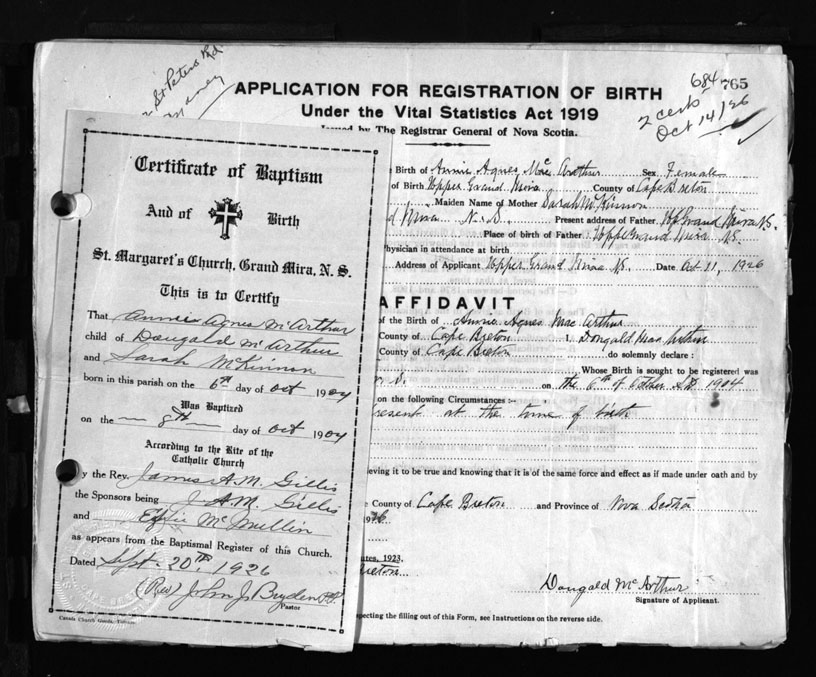 St Peters Rd
684
765
2 certs
Oct 14/26
APPLICATION FOR REGISTRATION OF BIRTH
Under the Vital Statistics Act 1919
Issued by The Registrar General of Nova Scotia.
Birth of Annie Agnes Mc Arthur Sex Female
of Birth Upper Grand Mira County of Cape Breton
Maiden Name of Mother Sarah McKinnon
Mira N.S. Present address of Father Up Grand Mira N.S.
Place of birth of Father Upper Grand Mira N.S.
Physician in attendance at birth
Address of Applicant Upper Grand Mira N.S. Date Oct 11, 1926
AFFIDAVIT
of the Birth of Annie Agnes Mac Arthur
County of Cape Breton I, Dongald Mac Arthur
County of Cape Breton do solemnly declare :
Whose Birth is sought to be registered was
on the 6th of October A.D. 1904
on the following Circumstances :-
present at the time of birth
eving it to be true and knowing that it is of the same force and effect as if made under oath and by
e County of Cape Breton and Province of Nova Scotia
utes, 1923.
Breton
Dougald McArthur
Signature of Applicant.
pecting the filling out of this Form, see Instructions on the reverse side.
Certificate of Baptism
And of Birth
St. Margaret's Church, Grand Mira, N. S.
This is to Certify
That Annie Agnes McArthur
child of Dougald McArthur
and Sarah McKinnon
born in this parish on the 6th day of Oct 1904
Was Baptized
on the 8th day of Oct 1904
According to the Rite of the
Catholic Church
by the Rev. James A.M. Gillis
the Sponsors being J. A.M. Gillis
and Effie McMullin
as appears from the Baptismal Register of this Church.
Dated Sept. 20th, 1926
(Rev) John J. Bryden P.P.
Pastor
Canada Church Goods, Toronto